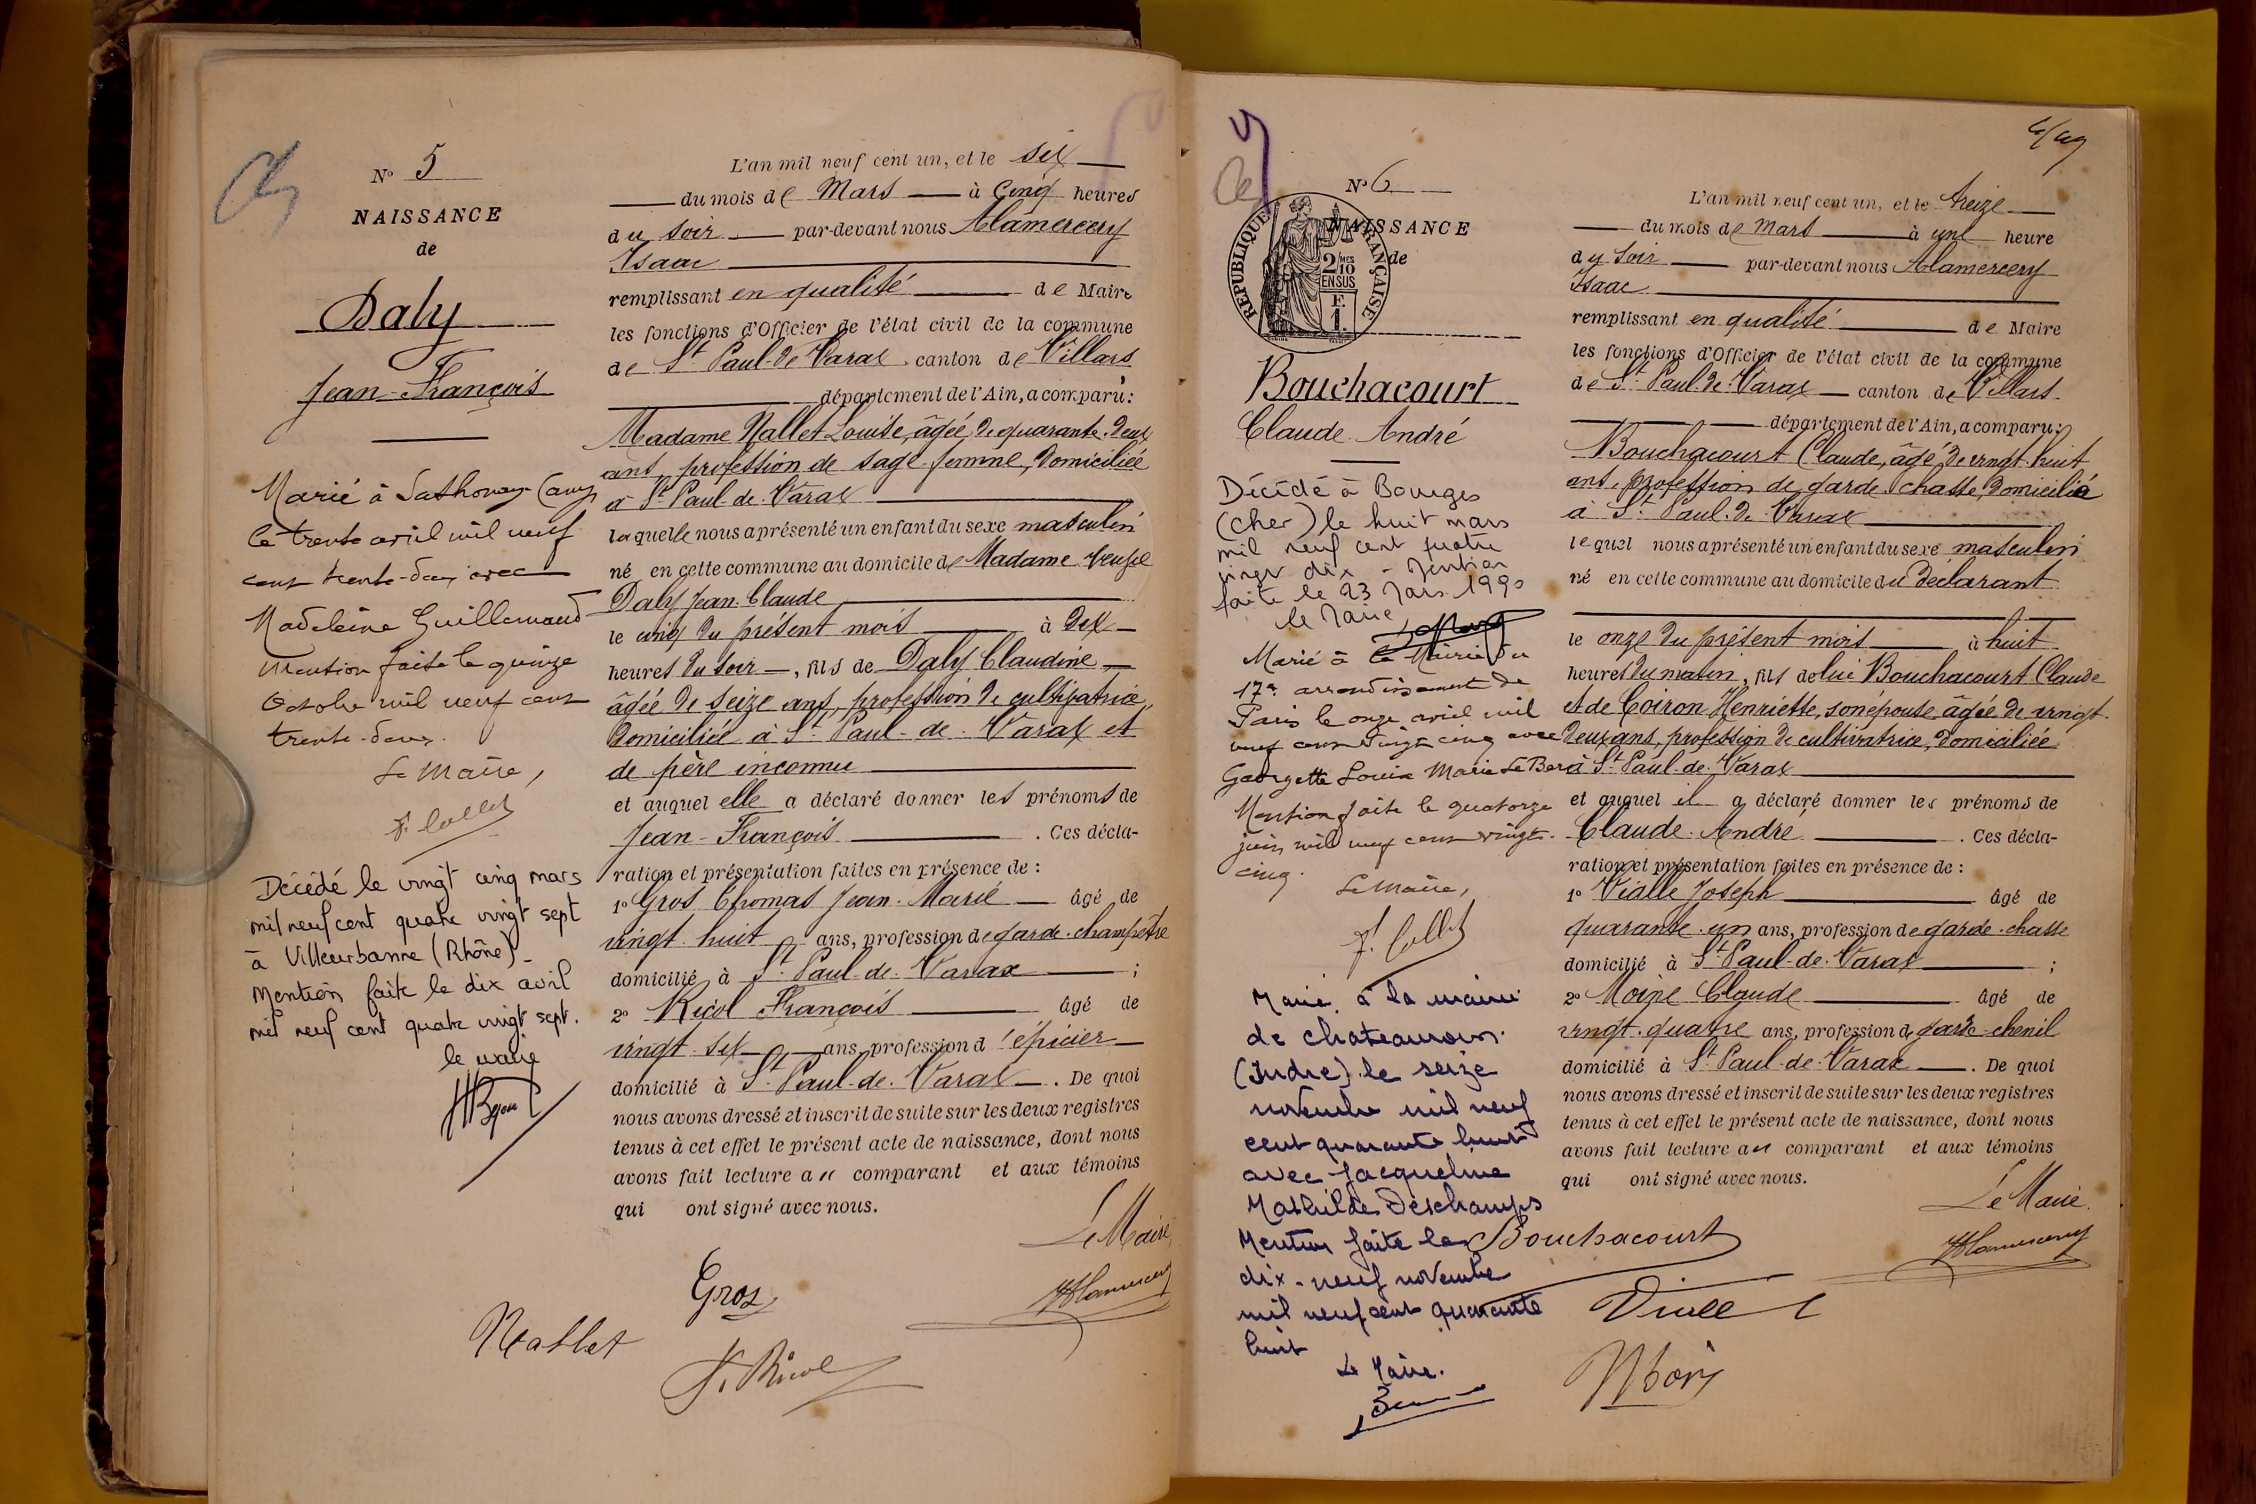 N° 5
NAISSANCE
de
Daly
Jean-François
Marié à Sathonay Camp
le trente avril mil neuf
cent trente-deux avec
Madeleine Guillemaud
Mention faite le quinze
Octobre mil neuf cent
trente-deux.
Le Maire,
F. Collet
Décédé le vingt cinq mars
mil neuf cent quatre vingt sept
à Villeurbanne (Rhône)_
Mention faite le dix avril
mil neuf cent quatre vingt sept.
le maire
L'an mil neuf cent un, et le six
du mois de Mars à cinq heures
du soir par-devant nous Alamercery
Isaac
remplissant en qualité de Maire
les fonctions d'Officier de l'état civil de la commune
de St Paul-de-Varax canton de Villars
département de l'Ain, a comparu :
Madame Nallet Louise, âgée de quarante-deux
ans, profession de sage-femme, domiciliée
à St Paul-de-Varax
laquelle nous a présenté un enfant du sexe masculin
né en cette commune au domicile de Madame veuve
Daly Jean-Claude
le cinq du présent mois à dix
heures du soir, fils de Daly Claudine,
âgée de seize ans, profession de cultivatrice,
domiciliée à St Paul-de-Varax et
de père inconnu
et auquel elle a déclaré donner les prénoms de
Jean-François . Ces décla-
ration et présentation faites en présence de :
1° Gros Thomas Jean-Marie âgé de
vingt-huit ans, profession de garde-champêtre
domicilié à St Paul-de-Varax ;
2° Ricol François âgé de
vingt-six ans, profession d'épicier
domicilié à St Paul-de-Varax . De quoi
nous avons dressé et inscrit de suite sur les deux registres
tenus à cet effet le présent acte de naissance, dont nous
avons fait lecture au comparant et aux témoins
qui ont signé avec nous.
Le Maire,
Gros
Alamercery
Nallet
F. Ricol
N° 6
NAISSANCE
de
RÉPUBLIQUE FRANÇAISE
2 MES
10
EN SUS
F.
1.
Bouchacourt
Claude-André
Décédé à Bourges
(Cher) le huit mars
mil neuf cent quatre
vingt dix - Mention
faite le 23 Mars 1990
le Maire,
Marié à la Mairie du
17e arrondissement de
Paris le onze avril mil
neuf cent vingt cinq avec
Georgette Louise Marie Le Bars
Mention faite le quatorze
juin mil neuf cent vingt-
cinq.
Le Maire,
F. Collet
Marié à la mairie
de Chateauroux
(Indre) le seize
novembre mil neuf
cent quarante huit
avec Jacqueline
Mathilde Deschamps
Mention faite le
dix-neuf novembre
mil neuf cent quarante
huit
Le Maire.
L'an mil neuf cent un, et le treize
du mois de Mars à une heure
du soir par-devant nous Alamercery
Isaac
remplissant en qualité de Maire
les fonctions d'Officier de l'état civil de la commune
de St Paul-de-Varax canton de Villars
département de l'Ain, a comparu :
Bouchacourt Claude, âgé de vingt-huit
ans, profession de garde-chasse, domicilié
à St Paul-de-Varax
lequel nous a présenté un enfant du sexe masculin
né en cette commune au domicile du déclarant
le onze du présent mois à huit
heures du matin, fils de lui Bouchacourt Claude
et de Coiron Henriette, son épouse âgée de vingt-
deux ans, profession de cultivatrice, domiciliée
à St Paul-de-Varax
et auquel il a déclaré donner les prénoms de
Claude-André . Ces décla-
ration et présentation faites en présence de :
1° Vialle Joseph âgé de
quarante-un ans, profession de garde-chasse
domicilié à St Paul-de-Varax ;
2° Moine Claude âgé de
vingt-quatre ans, profession de garde-chenil
domicilié à St Paul-de-Varax . De quoi
nous avons dressé et inscrit de suite sur les deux registres
tenus à cet effet le présent acte de naissance, dont nous
avons fait lecture au comparant et aux témoins
qui ont signé avec nous.
Le Maire.
Bouchacourt
Alamercery